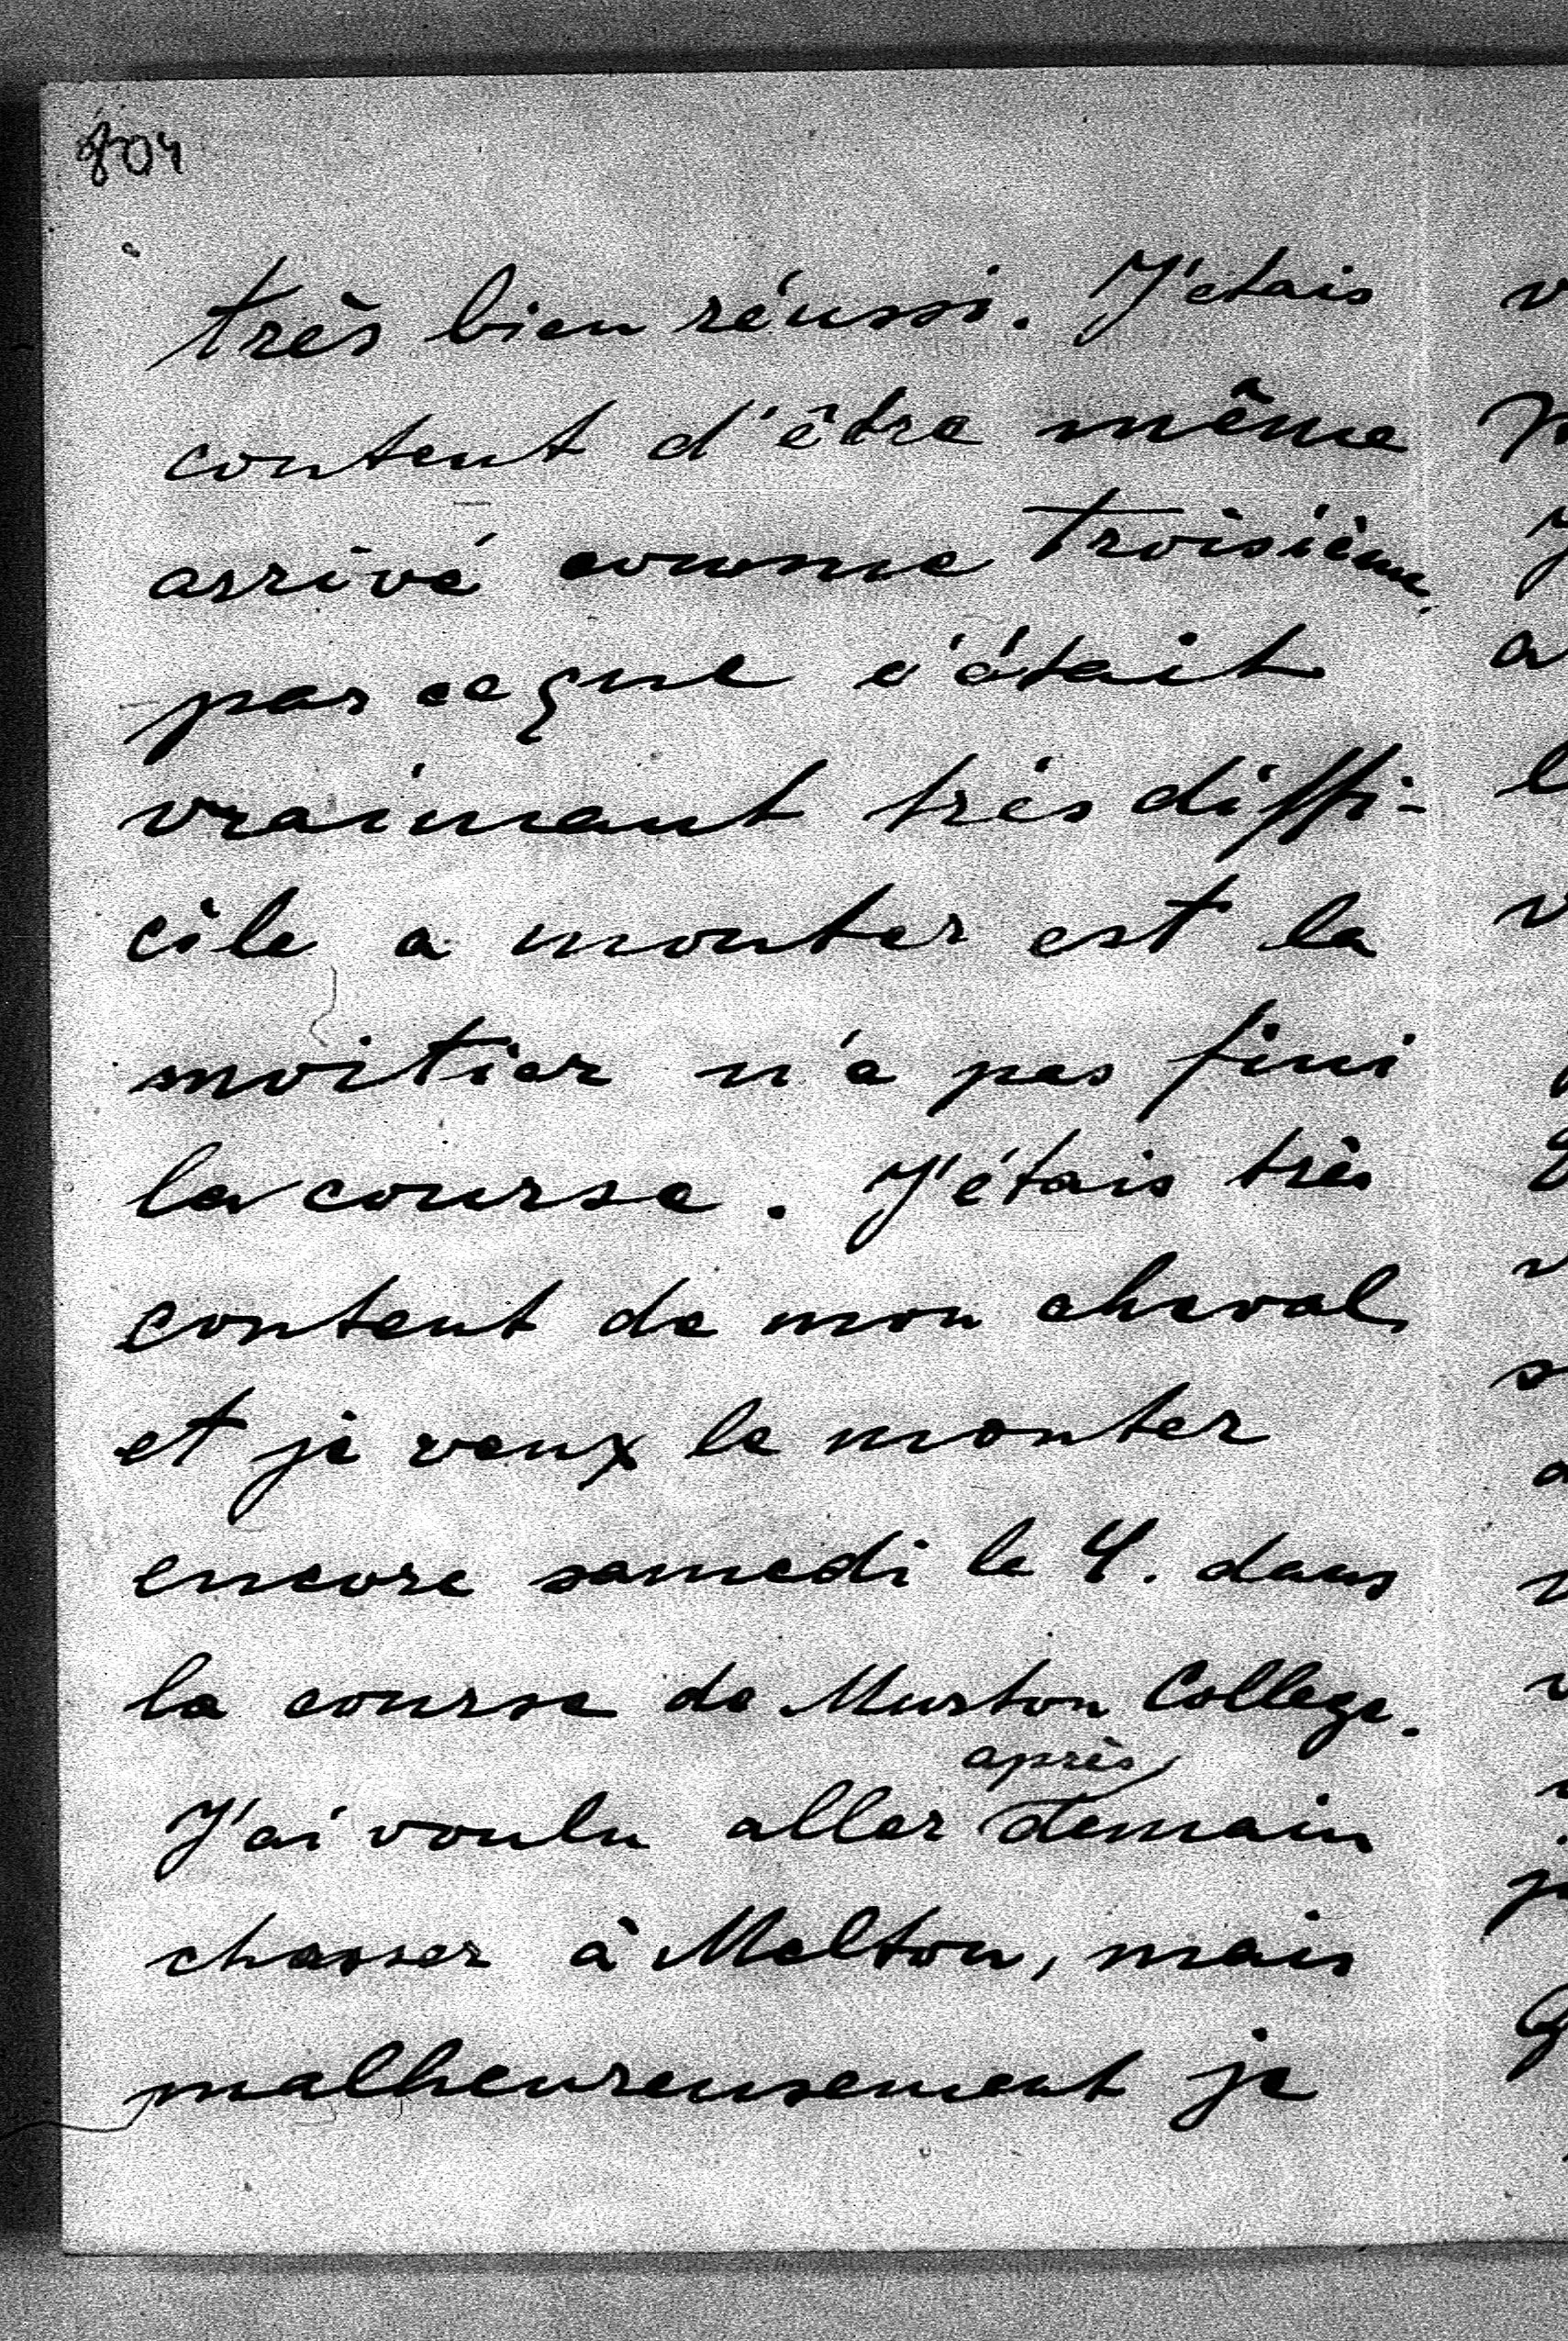 très bien réussi. J'étais
content d'être même
arrivé comme troisième,
par ce que c'était
vraimant très diffi-
cile a monter est la
moitier n'a pas fini
la course. J'étais très
content de mon cheval,
et je veux le monter
encore samedi le 4. dans
la course de Murton College.
après
J'ai voulu aller demain
chasser à Melton, mais
malheureusement je